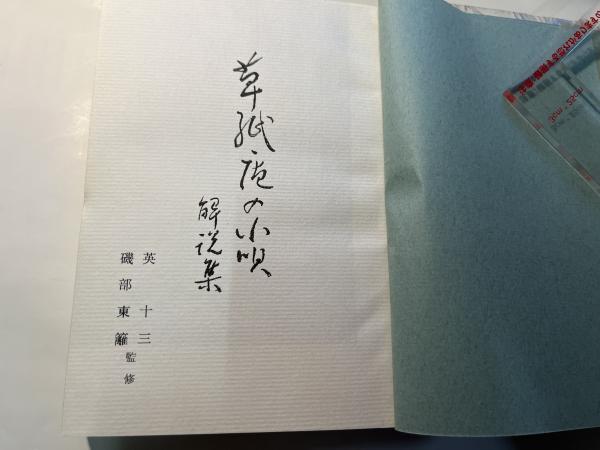 草紙庵の小唄
解説集
英十三
磯部東籬
監修